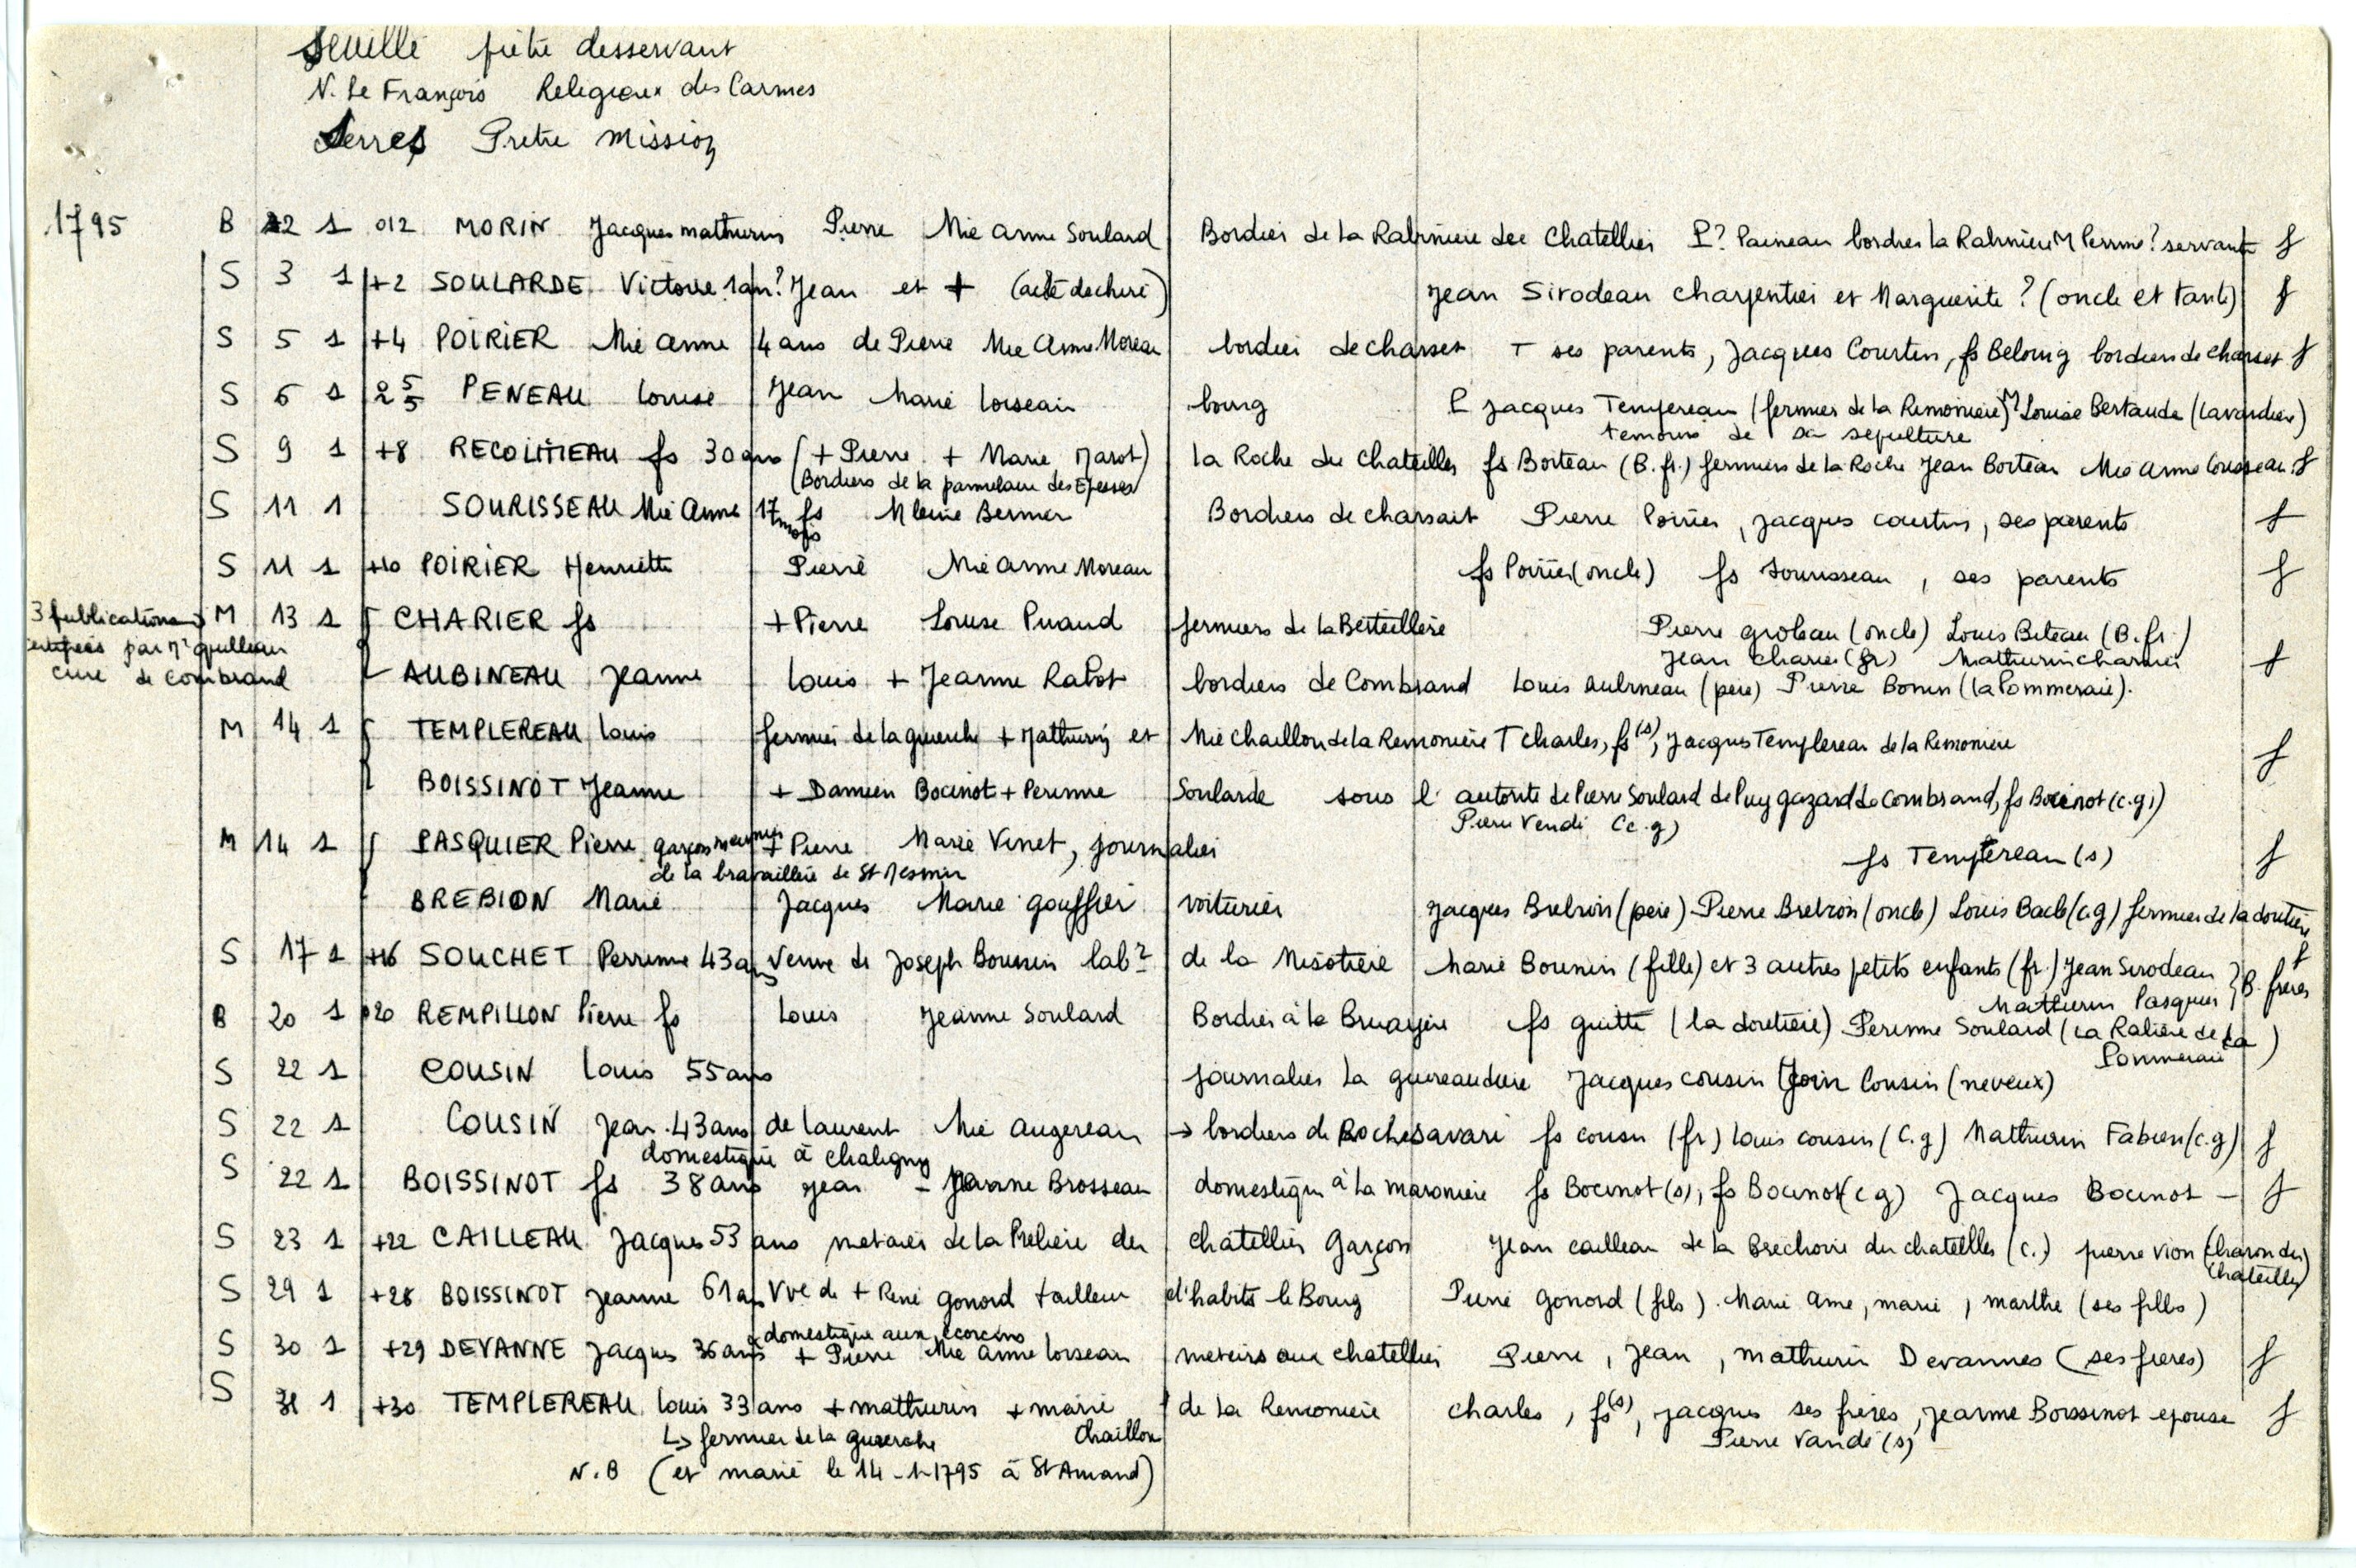 Seuille prêtre desservant
N. Le François Religieux des Carmes
Serres Pretre mission
1795 B 22 1 o12 MORIN Jacques mathurin Pierre Mie anne Soulard Bordier de La Rabinière du Chatellier P? Paineau bordier la Rabinière M Perrine? servante f
S 3 1 +2 SOULARDE Victoire 1an? Jean et + (acte dechiré) Jean Sirodeau charpentier et Marguerite? (oncle et tante) f
S 5 1 +4 POIRIER Mie anne 4 ans de Pierre Mie Anne Moreau bordier de charset T ses parents, Jacques Courtin, fs Belouig bordiers de charset f
S 6 1 PENEAU Louise Jean Marie Loiseau bourg P Jacques Tempereau (fermier de la Remonière) M Louise Bertaude (lavandière)
temoins de sa sepulture
S 9 1 +8 RECOLITIEAU fs 30 ans (+ Pierre + Marie Marot) La Roche du Chateiller fs Borteau (B.fr.) fermiers de la Roche Jean Borteau Mie Anne Cousseau f
(Bordiers de la des Epesses)
S 11 1 SOURISSEAU Mie Anne 17 mois fs Bordiers de charsait Pierre Poirier, Jacques courtin, ses parents f
S 11 1 +10 POIRIER Henriette Pierre Mie Anne Moreau fs Poirier (oncle) fs Sourisseau, ses parents f
3 publications M 13 1 CHARIER fs + Pierre Louise Puaud fermiers de la Berteillère Pierre groleau (oncle) Louis Biteau (B.fr.)
par Mr
Jean Charier (fr) Mathurin charrier f
cure de Combrand AUBINEAU Jeanne Louis + Jeanne Rabot bordiers de Combrand Louis Aubineau (père) Pierre Bonin (la Pommeraie).
M 14 1 TEMPLEREAU Louis fermier de la guierche + Mathurin et Mie Chaillou de la Remonière T Charles, fs (s), Jacques Templereau de la Remonière f
BOISSINOT Jeanne + Damien Bocinot + Perrine Soularde sous l'autorité de Pierre Soulard de Puy gazard de Combrand, fs Bocinot (c.g.)
Pierre Vendé (c.g)
M 14 1 PASQUIER Pierre garçon meunier + Pierre Marie Vinet, journalier fs Tempereau (s) f
de la bravaillière de St Mesmin
BREBION Marie Jacques Marie gouffier voiturier Jacques Brebion (père) Pierre Brebion (oncle) Louis Bacle (c.g) fermier de la doutière f
S 17 1 +16 SOUCHET Perrinne 43 ans Veuve de Joseph Bounin lab? de la Misotière Marie Bounin (fille) et 3 autres petits enfants (fr.) Jean Sirodeau
Mathurin Pasquier } B. frères
B 20 1 o20 REMPILLON Pierre fs Louis Jeanne Soulard Bordier à la Bruayère fs guitté (la doutière) Perinne Soulard (la Ralière de la
Pommeraie)
S 22 1 COUSIN Louis 55 ans journalier la guireaudière Jacques cousin Jean Cousin (neveux)
S 22 1 COUSIN Jean 43 ans de Laurent Mie Augereau → bordiers de Rochesavari fs cousin (fr) Louis cousin (c.g) Mathurin Fabien (c.g) f
domestique à chaligny
S 22 1 BOISSINOT fs 38 ans Jean – Jeanne Brosseau domestique à la maroniere fs Bocinot (s), fs Bocinot (c g) Jacques Bocinot – f
S 23 1 +22 CAILLEAU Jacques 53 ans metaier de la Prelière du chatellier Garçon Jean cailleau de la Brechoire du chateilles (c.) pierre vion (charon du
chateiller)
S 29 1 +28 BOISSINOT Jeanne 61 ans Vve de + René Gonord tailleur d'habits le Bourg Pierre Gonord (fils). Marie Anne, marie, marthe (ses filles)
domestique aux ecorcins
S 30 1 +29 DEVANNE Jacques 36 ans + Pierre Mie Anne Loiseau au chatellier Pierre, Jean, mathurin Devannes (ses freres) f
S 31 1 +30 TEMPLEREAU Louis 33 ans + mathurin + marie de la Remonière charles, fs (s), jacques ses frères, Jeanne Boissinot epouse f
↳ fermier de la guierche Chaillou Pierre Vandé (s)
N.B (et marié le 14-1-1795 à St Amand)